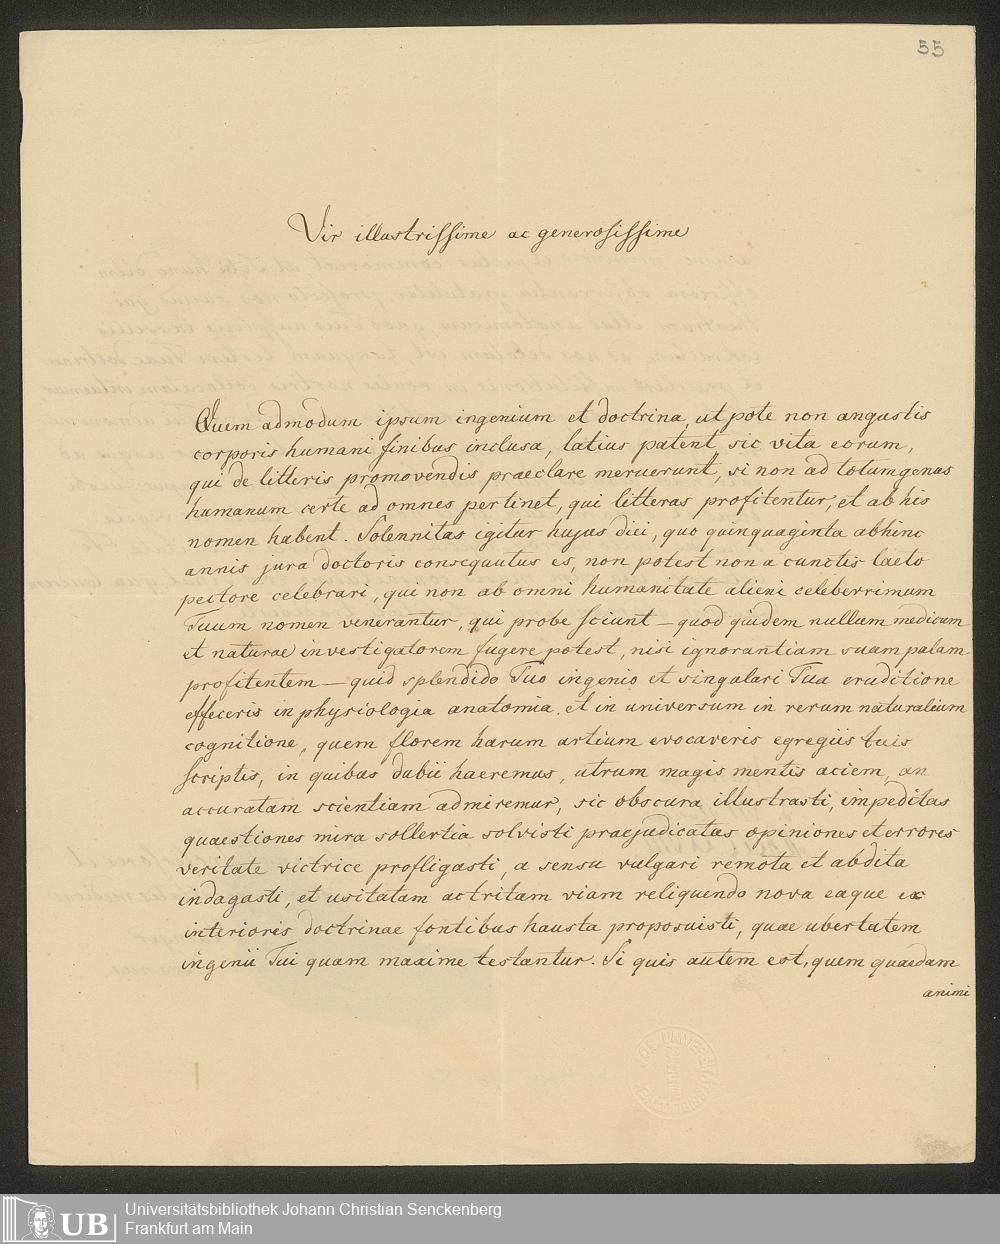 55
Vir illustrissime ac generosissime
Quem admodum ipsum ingenium et doctrina, ut pote non angustis
corporis humani finibus inclusa, latius patent, sic vita eorum,
qui de litteris promovendis praeclare meruerunt, si non ad totum genus
humanum certe ad omnes pertinet, qui litteras profitentur, et ab his
nomen habent. Solennitas igitur hujus diei, quo quinquaginta abhinc
annis jura doctoris consequutus es, non potest non a cunctis laeto
pectore celebrari, qui non ab omni humanitate alieni celeberrimum
Tuum nomen venerantur, qui probe sciunt – quod quidem nullum medicum
et naturae investigatorem fugere potest, nisi ignorantiam suam palam
profitentem – quid splendido Tuo ingenio et singulari Tua eruditione
effeceris in physiologia anatomia, et in universum in rerum naturalium
cognitione, quem florem harum artium evocaveris egregiis tuis
scriptis, in quibus dubii haeremus, utrum magis mentis aciem, an
accuratam scientiam admiremur, sic obscura illustrasti, impeditas
quaestiones mira sollertia solvisti praejudicatas opiniones et errores
veritate victrice profligasti, a sensu vulgari remota et abdita
indagasti, et usitatam ac tritam viam reliquendo nova eaque ex
interioris doctrinae fontibus hausta proposuisti, quae ubertatem
ingenii Tui quam maxime testantur. Si quis autem est, quem quaedam
animi
UB
Universitätsbibliothek Johann Christian Senckenberg
Frankfurt am Main